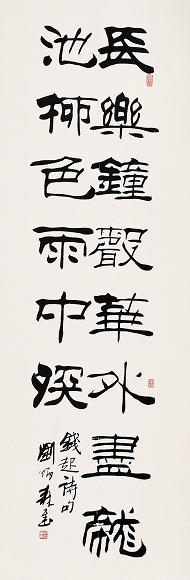 長樂鐘聲華外盡龍
池柳色雨中深
錢起詩句
劉炳森書